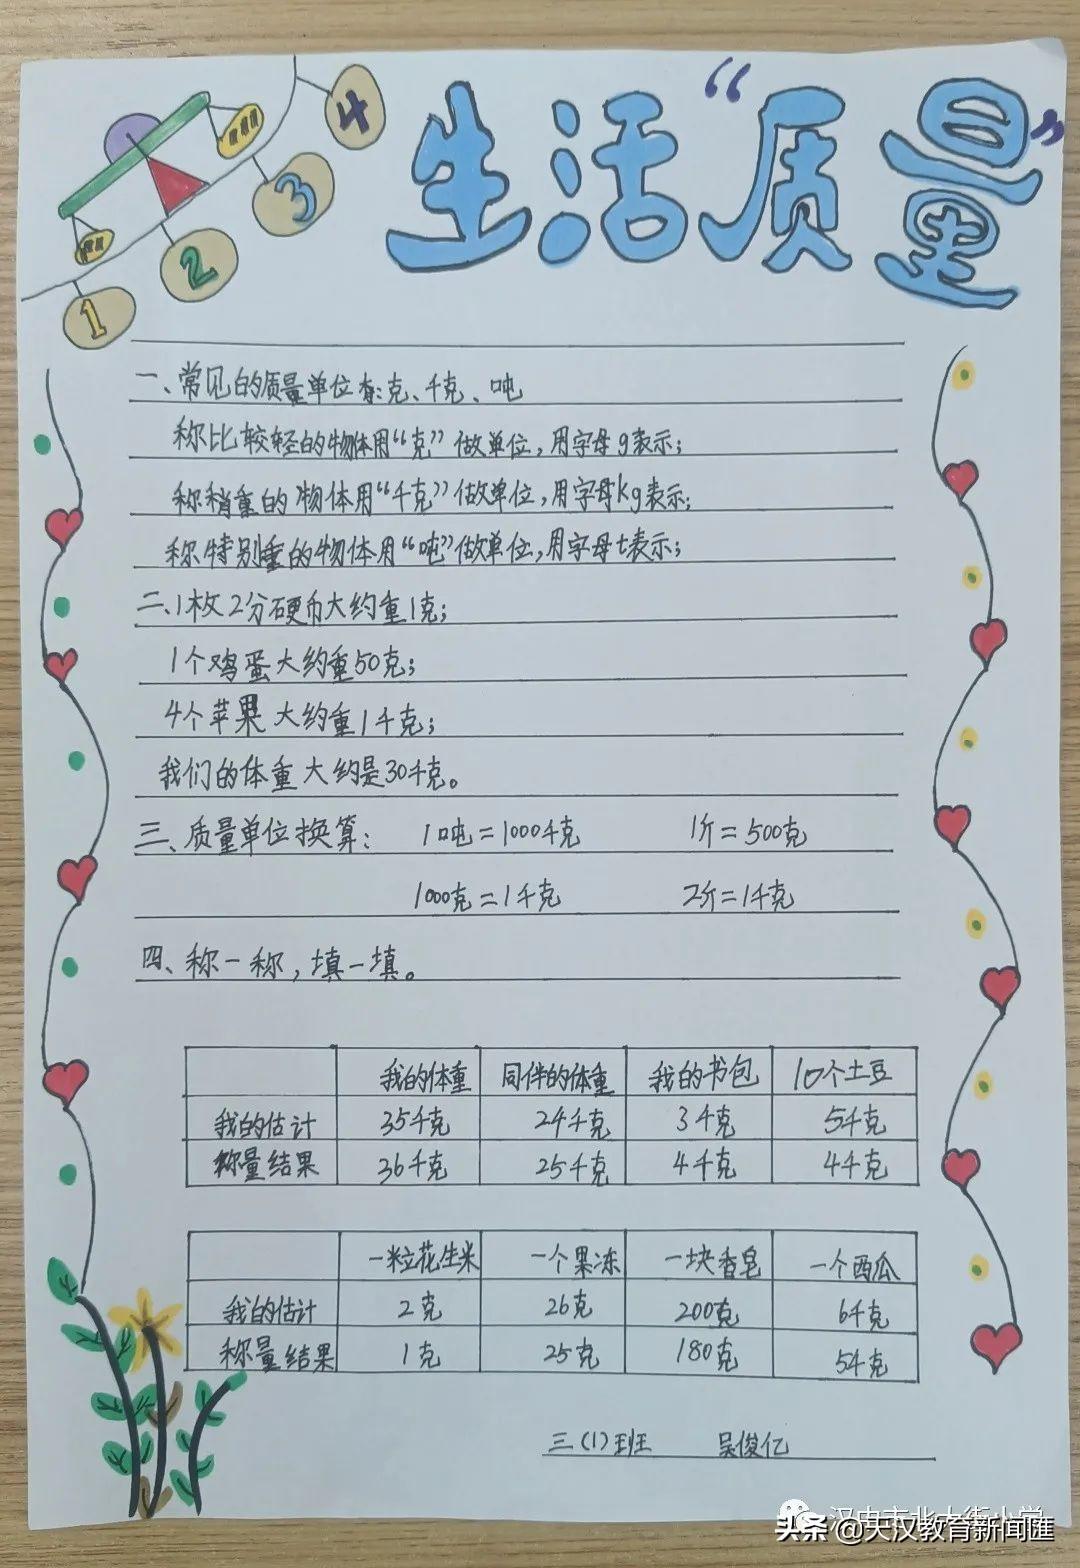 生活“质量”
4
3
2
1
一、常见的质量单位有:克、千克、吨
称比较轻的物体用“克”做单位,用字母g表示;
称稍重的物体用“千克”做单位,用字母kg表示;
称特别重的物体用“吨”做单位,用字母t表示;
二、1枚2分硬币大约重1克;
1个鸡蛋大约重50克;
4个苹果大约重1千克;
我们的体重大约是30千克。
三、质量单位换算: 1吨=1000千克 1斤=500克
1000克=1千克 2斤=1千克
四、称一称,填一填。
我的体重 同伴的体重 我的书包 10个土豆
我的估计 35千克 24千克 3千克 5千克
称量结果 36千克 25千克 4千克 4千克
一粒花生米 一个果冻 一块香皂 一个西瓜
我的估计 2克 26克 200克 6千克
称量结果 1克 25克 180克 5千克
三(1)班 吴俊亿
头条@天汉教育新闻匯